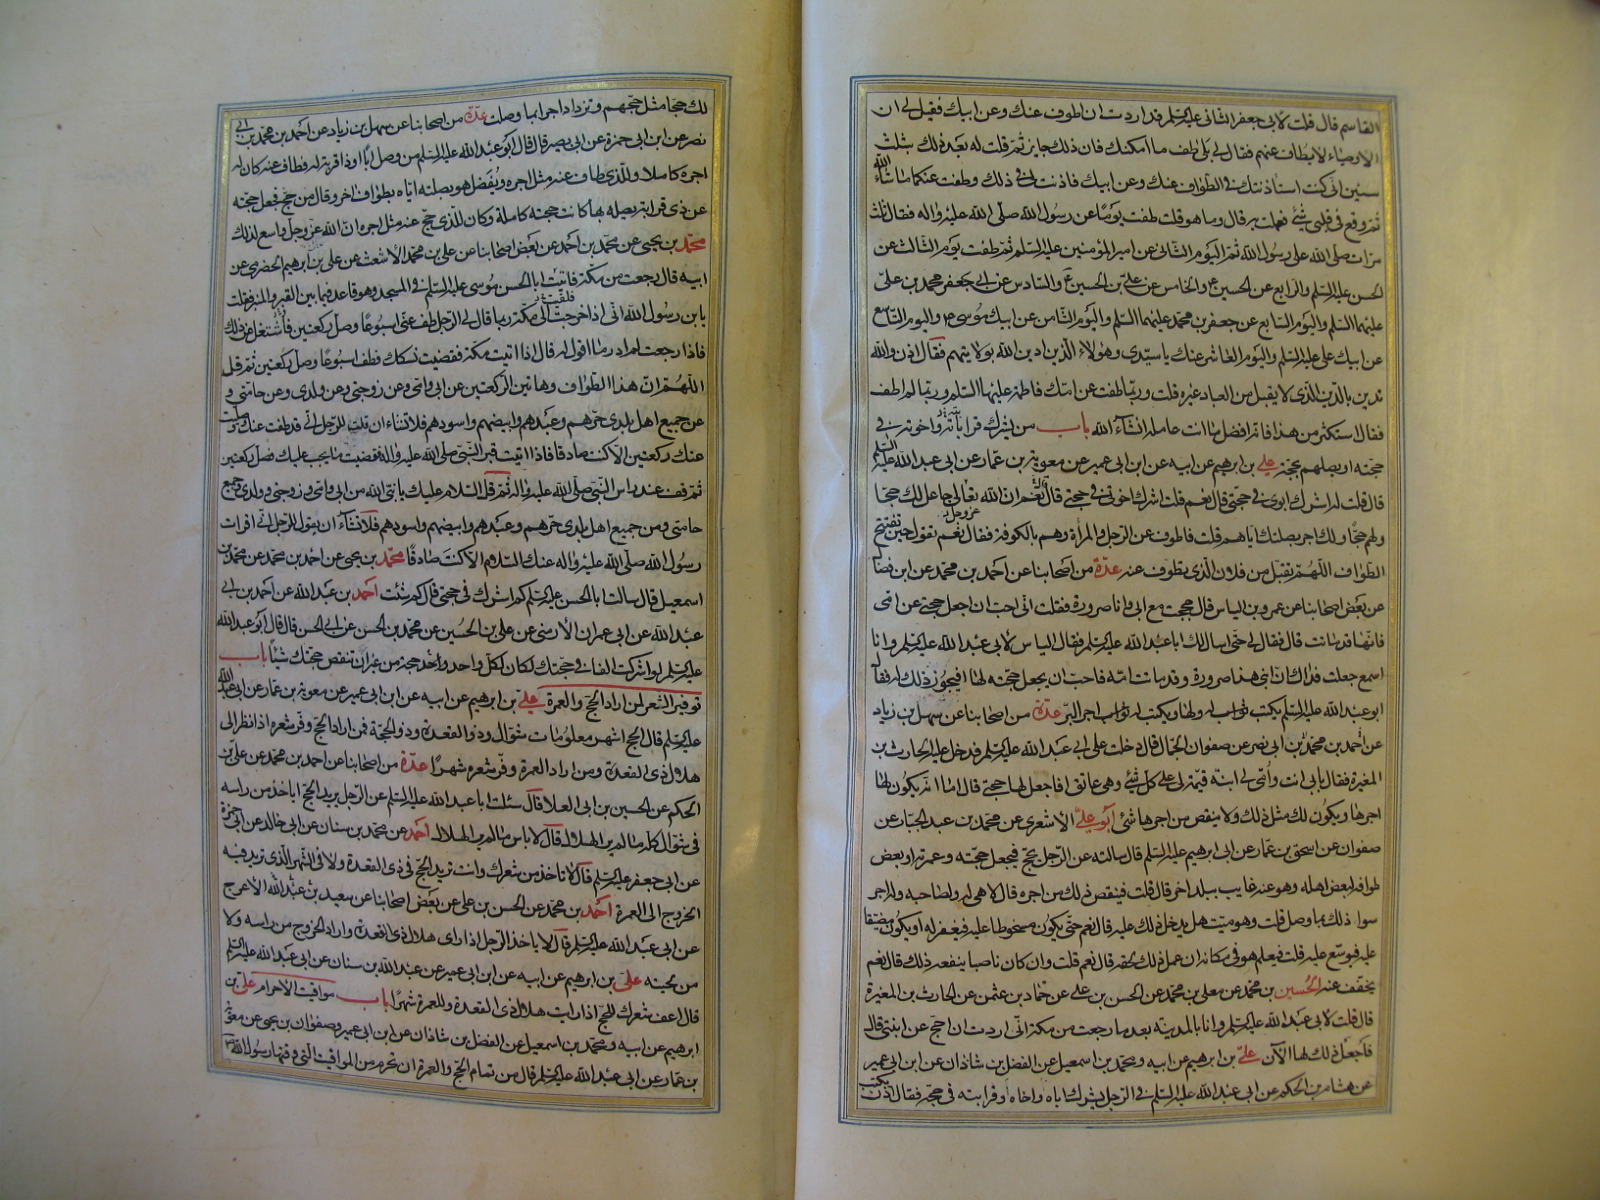 القاسم قال قلت لابي جعفر الثاني عليه السلم قد اردت ان اطوف عنك وعن ابيك فقيل لي ان
الاوصياء لا يطاف عنهم فقال لي بلى طف ما امكنك فان ذلك جايز ثم قلت له بعد ذلك بثلث
سنين اني كنت استاذنتك في الطواف عنك وعن ابيك فاذنت لي في ذلك وطفت عنكما ما شاء الله
ثم وقع في قلبي شئ فعملت به قال وما هو قلت طفت يوما عن رسول الله صلى الله عليه واله فقال ثلث
مرات صلى الله على رسول الله ثم اليوم الثاني عن امير المؤمنين عليه السلم ثم طفت يوم الثالث عن
الحسن عليه السلم والرابع عن الحسين ع والخامس عن علي بن الحسين ع والسادس عن ابي جعفر محمد بن علي
عليهما السلم واليوم السابع عن جعفر بن محمد عليهما السلم واليوم الثامن عن ابيك موسى ع واليوم التاسع
عن ابيك علي عليه السلم واليوم العاشر عنك يا سيدي وهولاء الذين ادين الله بولايتهم فقال اذن والله
تدين بالدين الذي لا يقبل من العباد غيره قلت وربما طفت عن امك فاطمة عليها السلم وربما لم اطف
فقال استكثر من هذا فانه افضل ما انت عامله ان شاء الله باب من يشرك قرابته واخوته في
حجته او يصلهم بحجة علي بن ابرهيم عن ابيه عن ابن ابي عمير عن معوية بن عمار عن ابي عبد الله عليه السلم
قال قلت له اشرك ابوي في حجتي قال نعم قلت اشرك اخوتي في حجتي قال نعم ان الله تعالى جاعل لك حجا
ولهم حجا ولك اجر بصلتك اياهم قلت فاطوف عن الرجل والمراة وهم بالكوفة فقال نعم تقول حين تفتتح
الطواف اللهم تقبل من فلان الذي يطوف عنه عدة من اصحابنا عن احمد بن محمد عن ابن فضال
عن بعض اصحابنا عن عمرو بن الياس قال حججت مع ابي وانا صرورة فقلت اني احب ان اجعل حجتي عن امي
فانها قد ماتت قال فقال لي حتى اسال لك ابا عبد الله عليه السلم فقال الياس لابي عبد الله عليه السلم وانا
اسمع جعلت فداك ان ابني هذا صرورة وقد ماتت امه فاحب ان يجعل حجته لها افيجوز ذلك له فقال
ابو عبد الله عليه السلم يكتب له ولها ويكتب له ثواب اجر البر عدة من اصحابنا عن سهل بن زياد
عن احمد بن محمد بن ابي نصر عن صفوان الجمال قال دخلت على ابي عبد الله عليه السلم فدخل عليه الحارث بن
المغيرة فقال بابي انت وامي لي ابنة قيمة لي على كل شئ وهي عاتق افاجعل لها حجتي قال اما انه يكون لها
اجرها ويكون لك مثل ذلك ولا ينقص من اجرها شئ ابو علي الاشعري عن محمد بن عبد الجبار عن
صفوان عن اسحق بن عمار عن ابي ابرهيم عليه السلم قال سالته عن الرجل يحج فيجعل حجته وعمرته او بعض
طوافه لبعض اهله وهو عنه غايب ببلد اخر قال قلت فينقص ذلك من اجره قال لا هي له ولصاحبه وله اجر
سوا ذلك بما وصل قلت وهو ميت هل يدخل ذلك عليه قال نعم حتى يكون مسخوطا عليه فيغفر له او يكون مضيقا
عليه فيوسع عليه قلت فيعلم هو في مكانه ان عمل ذلك لحقه قال نعم قلت وان كان ناصبا ينفعه ذلك قال نعم
يخفف عنه الحسين بن محمد عن معلى بن محمد عن الحسن بن علي عن حماد بن عثمن عن الحارث بن المغيرة
قال قلت لابي عبد الله عليه السلم وانا بالمدينة بعد ما رجعت من مكة اني اردت ان احج عن ابنتي قال
فاجعل ذلك لها الآن علي بن ابرهيم عن ابيه ومحمد بن اسمعيل عن الفضل بن شاذان عن ابن ابي عمير
عن هشام بن الحكم عن ابي عبد الله عليه السلم في الرجل يشرك اباه واخاه او قرابته في حجه فقال اذن يكتب
لك حجا مثل حجهم وتزداد اجرا بما وصلت عدة من اصحابنا عن سهل بن زياد عن احمد بن محمد بن ابي
نصر عن ابن ابي حمزة عن ابي بصير قال قال ابو عبد الله عليه السلم من وصل ابا او ذا قرابة له فطاف عنه كان له
اجره كاملا وللذي طاف عنه مثل اجره ويفضل هو بصلته اياه بطواف اخر وقال من حج فجعل حجته
عن ذي قرابته يصله بها كانت حجته كاملة وكان للذي حج عنه مثل اجره ان الله عز وجل واسع لذلك
محمد بن يحيى عن محمد بن احمد عن بعض اصحابنا عن علي بن محمد الاشعث عن علي بن ابرهيم الحضرمي عن
ابيه قال رجعت من مكة فاتيت ابا الحسن موسى عليه السلم في المسجد وهو قاعد فيما بين القبر والمنبر فقلت
يا بن رسول الله اني اذا خرجت الى مكة ربما قال لي الرجل طف عني اسبوعا وصل ركعتين فاشتغل عن ذلك
فاذا رجعت لم ادر ما اقول له قال اذا اتيت مكة فقضيت نسكك فطف اسبوعا وصل ركعتين ثم قل
اللهم ان هذا الطواف وهاتين الركعتين عن ابي وامي وعن زوجتي وعن ولدي وعن حامتي و
عن جميع اهل بلدي حرهم وعبدهم وابيضهم واسودهم فلا تشاء ان قلت للرجل اني قد طفت عنك وصليت
عنك ركعتين الا كنت صادقا فاذا اتيت قبر النبي صلى الله عليه واله فقضيت ما يجب عليك فصل ركعتين
ثم قف عند راس النبي صلى الله عليه واله ثم قل السلام عليك يا نبي الله من ابي وامي وزوجتي وولدي وجميع
حامتي ومن جميع اهل بلدي حرهم وعبدهم وابيضهم واسودهم فلا تشاء ان يقول للرجل اني اقرات
رسول الله صلى الله عليه واله عنك السلام الا كنت صادقا محمد بن يحيى عن احمد بن محمد عن محمد بن
اسمعيل قال سالت ابا الحسن عليه السلم كم اشرك في حجتي قال كم شئت احمد بن عبد الله عن احمد بن ابي
عبد الله عن ابي عمران الارمني عن علي بن الحسين عن محمد بن الحسن عن ابي الحسن قال قال ابو عبد الله
عليه السلم لو اشركت الفا في حجتك لكان لكل واحد واحد حجة من غير ان تنقص حجتك شيئا باب
توفير الشعر لمن اراد الحج والعمرة علي بن ابرهيم عن ابيه عن ابن ابي عمير عن معوية بن عمار عن ابي عبد الله
عليه السلم قال الحج اشهر معلومات شوال وذو القعدة وذو الحجة فمن اراد الحج وفر شعره اذا نظر الى
هلال ذي القعدة ومن اراد العمرة وفر شعره شهرا عدة من اصحابنا عن احمد بن محمد عن علي بن
الحكم عن الحسين بن ابي العلا قال سئلت ابا عبد الله عليه السلم عن الرجل يريد الحج اياخذ من راسه
في شوال كله ما لم ير الهلال قال لا باس ما لم ير الهلال احمد عن محمد بن سنان عن ابي خالد عن ابي حمزة
عن ابي جعفر عليه السلم قال لا تاخذ من شعرك وانت تريد الحج في ذي القعدة ولا في الشهر الذي تريد فيه
الخروج الى العمرة احمد بن محمد عن الحسن بن علي عن بعض اصحابنا عن سعيد بن عبد الله الاعرج
عن ابي عبد الله عليه السلم قال لا ياخذ الرجل اذا راى هلال ذي القعدة واراد الخروج من راسه ولا
من لحيته علي بن ابرهيم عن ابيه عن ابن ابي عمير عن عبد الله بن سنان عن ابي عبد الله عليه السلم
قال اعف شعرك للحج اذا رايت هلال ذي القعدة وللعمرة شهرا باب مواقيت الاحرام علي بن
ابرهيم عن ابيه ومحمد بن اسمعيل عن الفضل بن شاذان عن ابن ابي عمير وصفوان بن يحيى عن معوية
بن عمار عن ابي عبد الله عليه السلم قال من تمام الحج والعمرة ان تحرم من المواقيت التي وقتها رسول الله